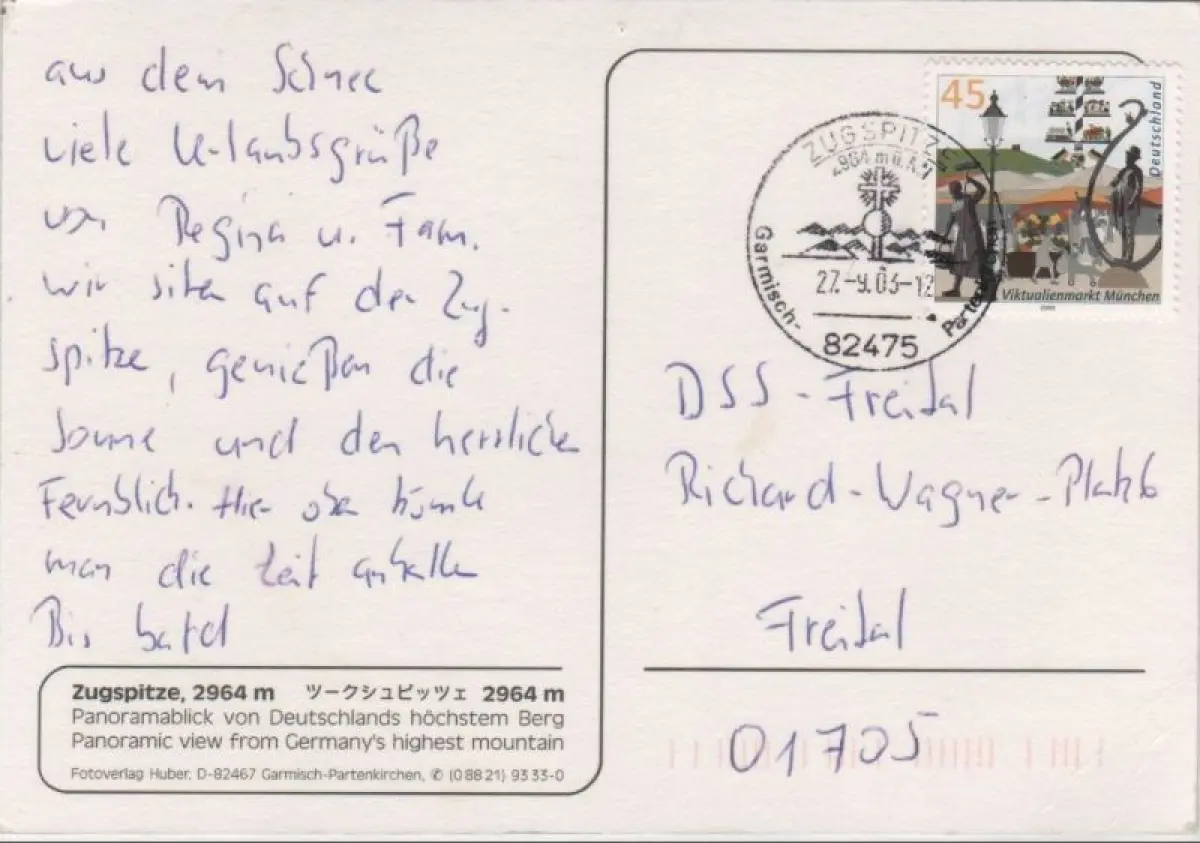 aus dem Schnee
viele Urlaubsgrüße
von Regina u. Fam.
wir sitzen auf der Zug-
spitze, genießen die
Sonne und den herrlichen
Fernblick. Hier oben könnte
man die Zeit anhalten
Bis bald
Zugspitze, 2964 m ツークシュピッツェ 2964 m
Panoramablick von Deutschlands höchstem Berg
Panoramic view from Germany's highest mountain
Fotoverlag Huber, D-82467 Garmisch-Partenkirchen, ✆ (0 88 21) 93 33-0
ZUGSPITZE
2964 m ü.NN
Garmisch-Partenkirchen
27.-9.03-12
82475
45
Deutschland
Viktualienmarkt München
DSS - Freital
Richard-Wagner-Platz 6
Freital
01705